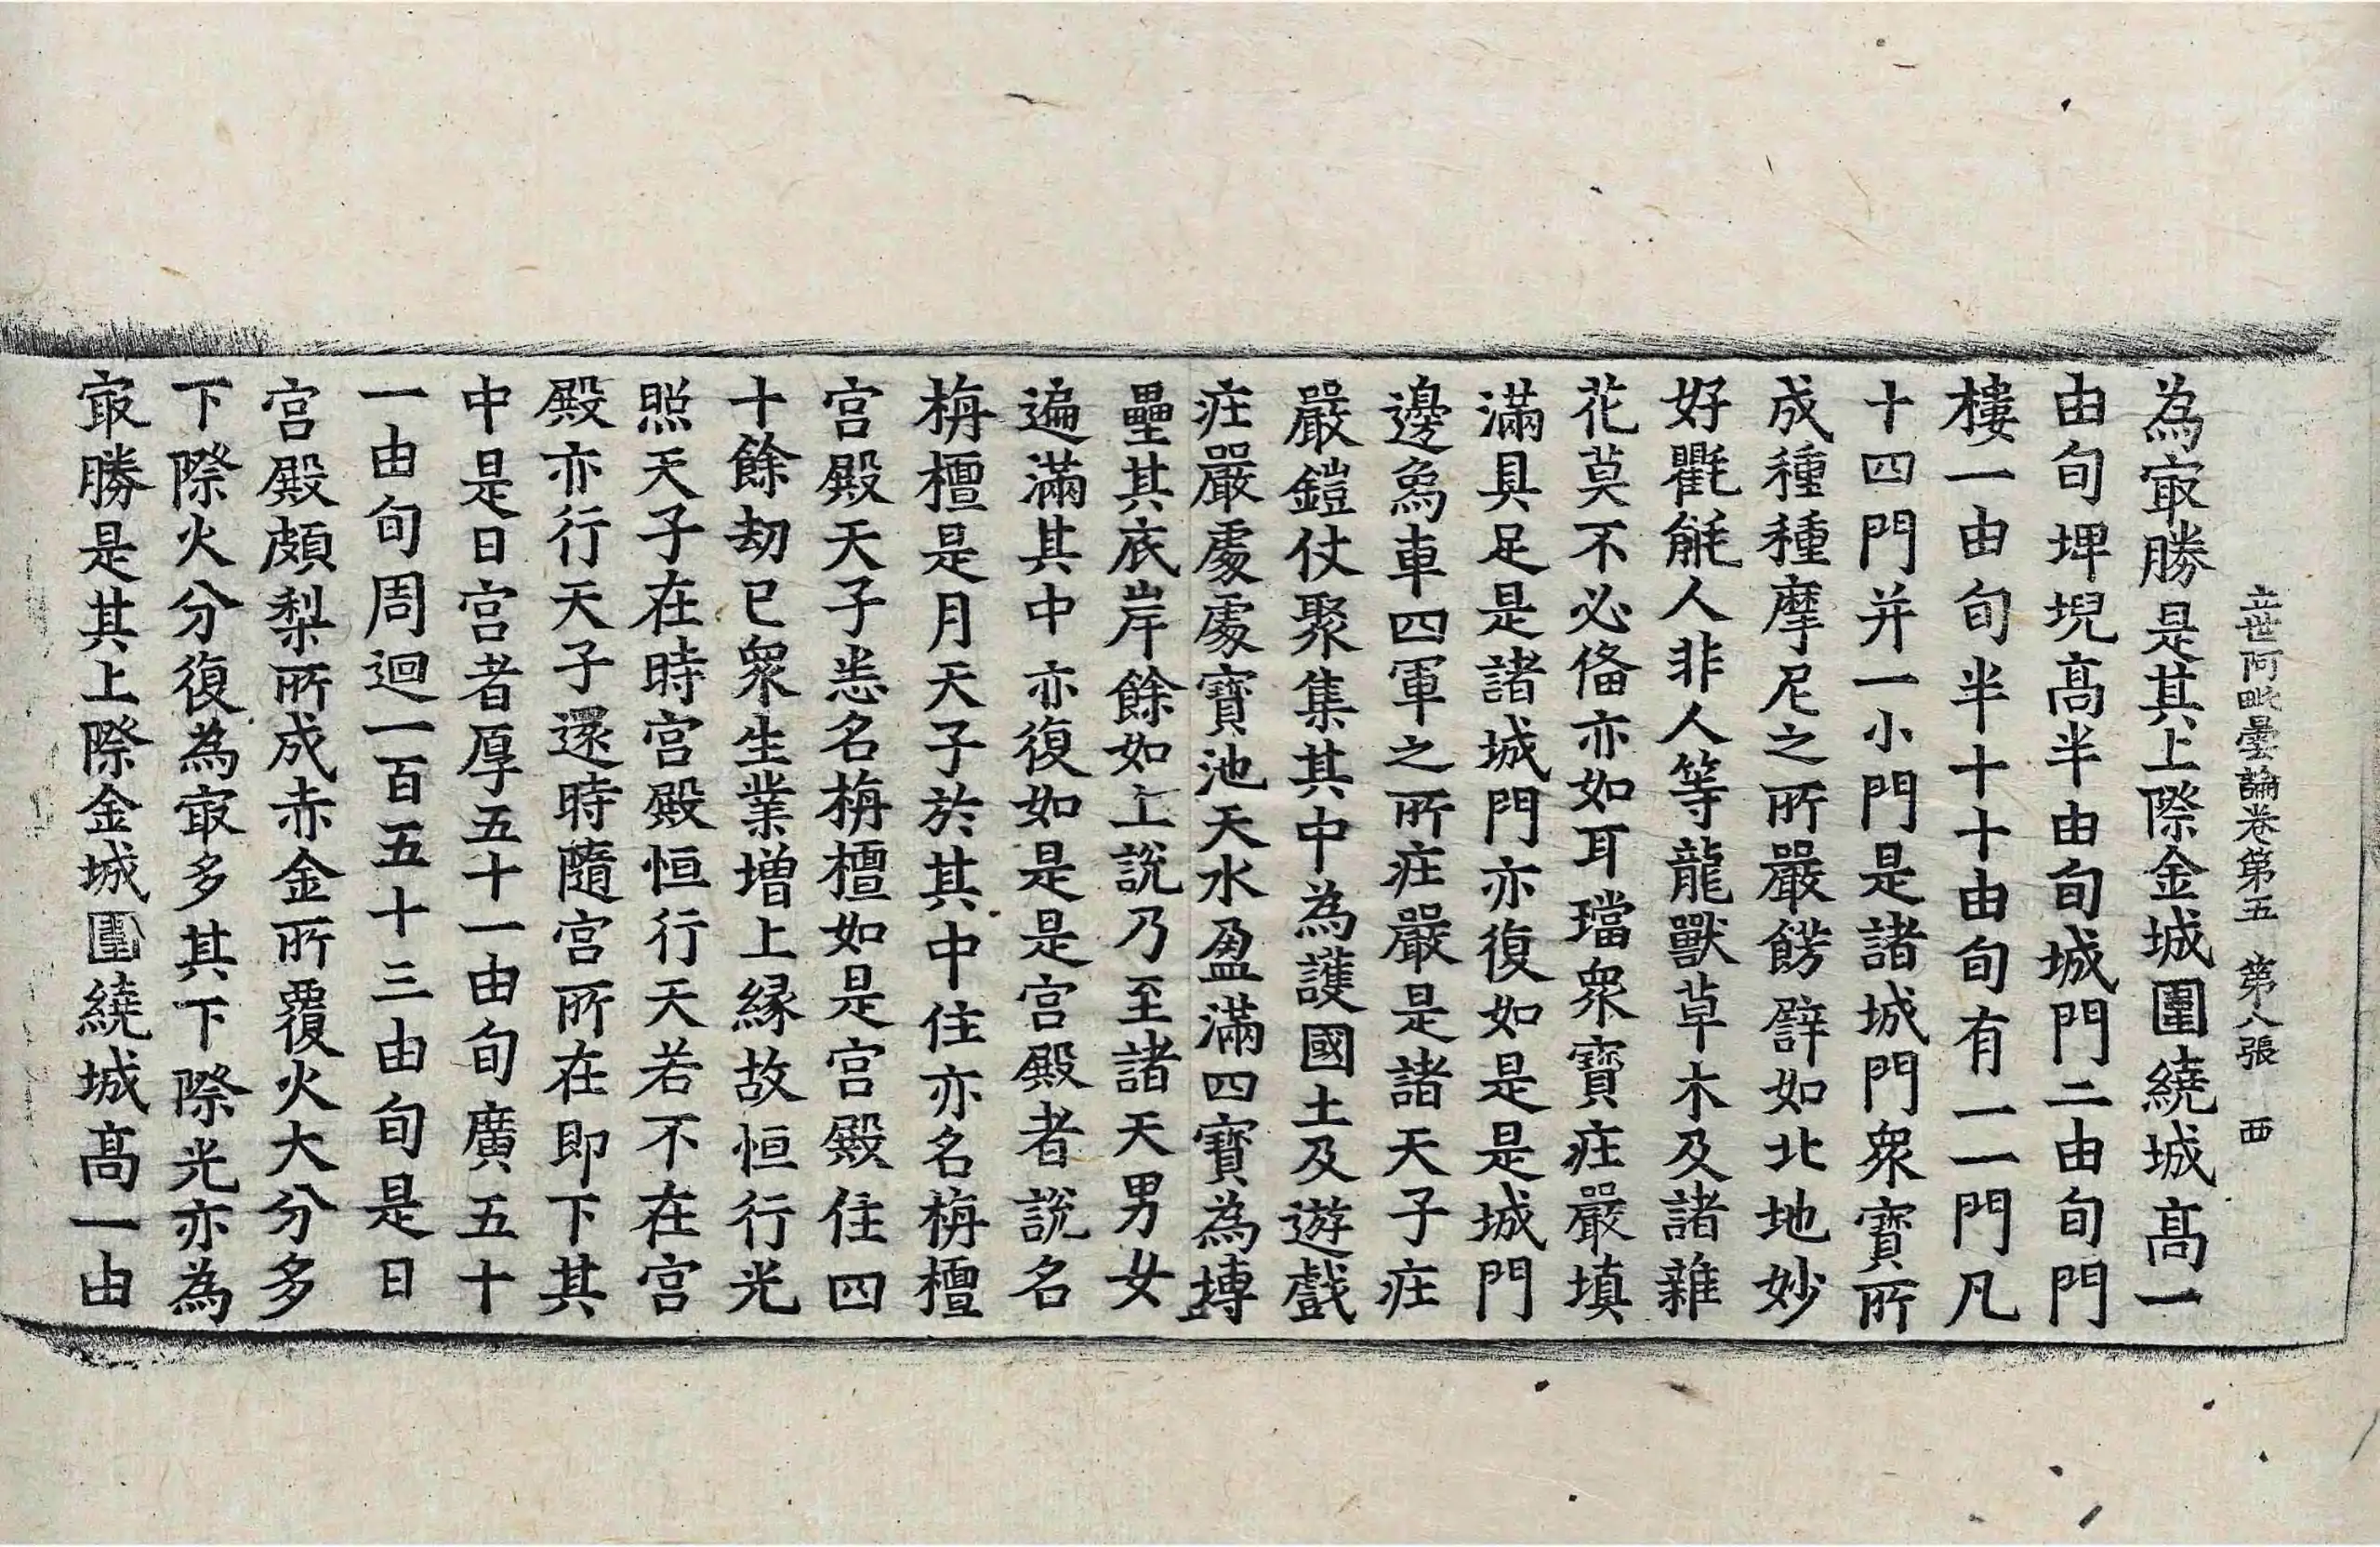 立世阿毗曇論卷第五　第八張　西
為冣勝是其上際金城圍繞城高一
由旬埤堄高半由旬城門二由旬門
樓一由旬半十十由旬有一一門凡
十四門并一小門是諸城門衆寶所
成種種摩尼之所嚴餝譬如北地妙
好氍毹人非人等龍獸草木及諸雜
花莫不必俻亦如耳璫衆寶莊嚴填
滿具足是諸城門亦復如是是城門
邊象車四軍之所莊嚴是諸天子莊
嚴鎧仗聚集其中為護國土及遊戲
莊嚴處處寶池天水盈滿四寶為塼
壘其底岸餘如上說乃至諸天男女
遍滿其中亦復如是是宮殿者說名
栴檀是月天子於其中住亦名栴檀
宮殿天子恙名栴檀如是宮殿住四
十餘劫已衆生業增上緣故恒行光
照天子在時宮殿恒行天若不在宮
殿亦行天子還時隨宮所在即下其
中是日宮者厚五十一由旬廣五十
一由旬周迴一百五十三由旬是日
宮殿頗梨所成赤金所覆火大分多
下際火分復為冣多其下際光亦為
冣勝是其上際金城圍繞城高一由